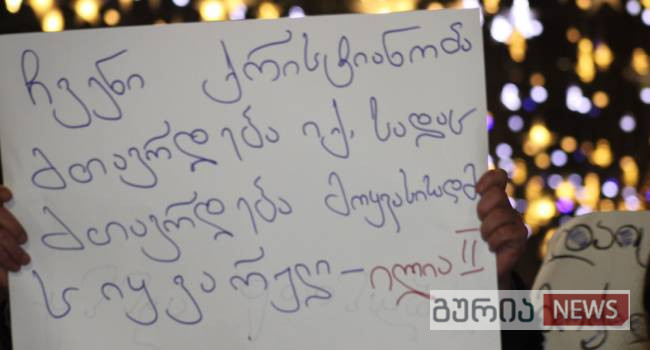 ჩვენი ქრისტიანობა
მთავრდება იქ, სადაც
მთავრდება მოყვასისადმი
სიყვარული - ილია II
გურია NEWS